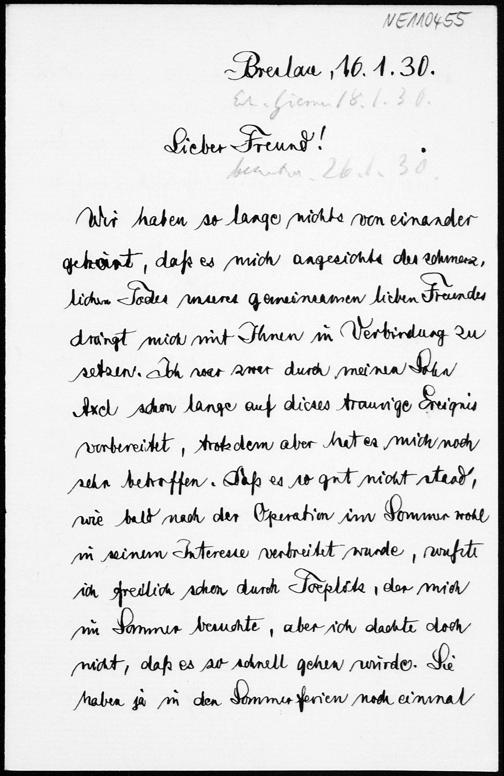 NE110455
Breslau, 16.1.30.
18.1.30.
Lieber Freund!
26.1.30.
Wir haben so lange nichts von einander
gehört, daß es mich angesichts des schmerz,
lichen Todes unseres gemeinsamen lieben Freundes
drängt mich mit Ihnen in Verbindung zu
setzen. Ich war zwar durch meinen Sohn
Axel schon lange auf dieses traurige Ereignis
vorbereitet, trotzdem aber hat es mich noch
sehr betroffen. Daß es so gut nicht stand,
wie bald nach der Operation im Sommer wohl
in seinem Interesse verbreitet wurde, wußte
ich freilich schon durch Toeplitz, der mich
im Sommer besuchte, aber ich dachte doch
nicht, daß es so schnell gehen würde. Sie
haben ja in den Sommerferien noch einmal